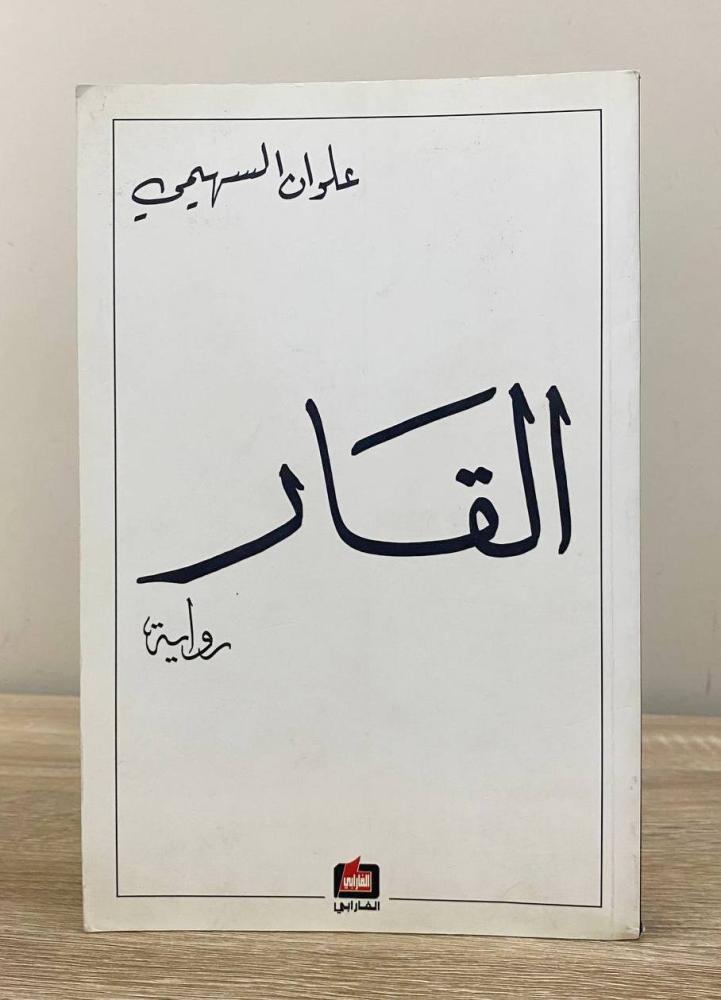 علوان السهيمي
القار
رواية
الفارابي
الفارابي